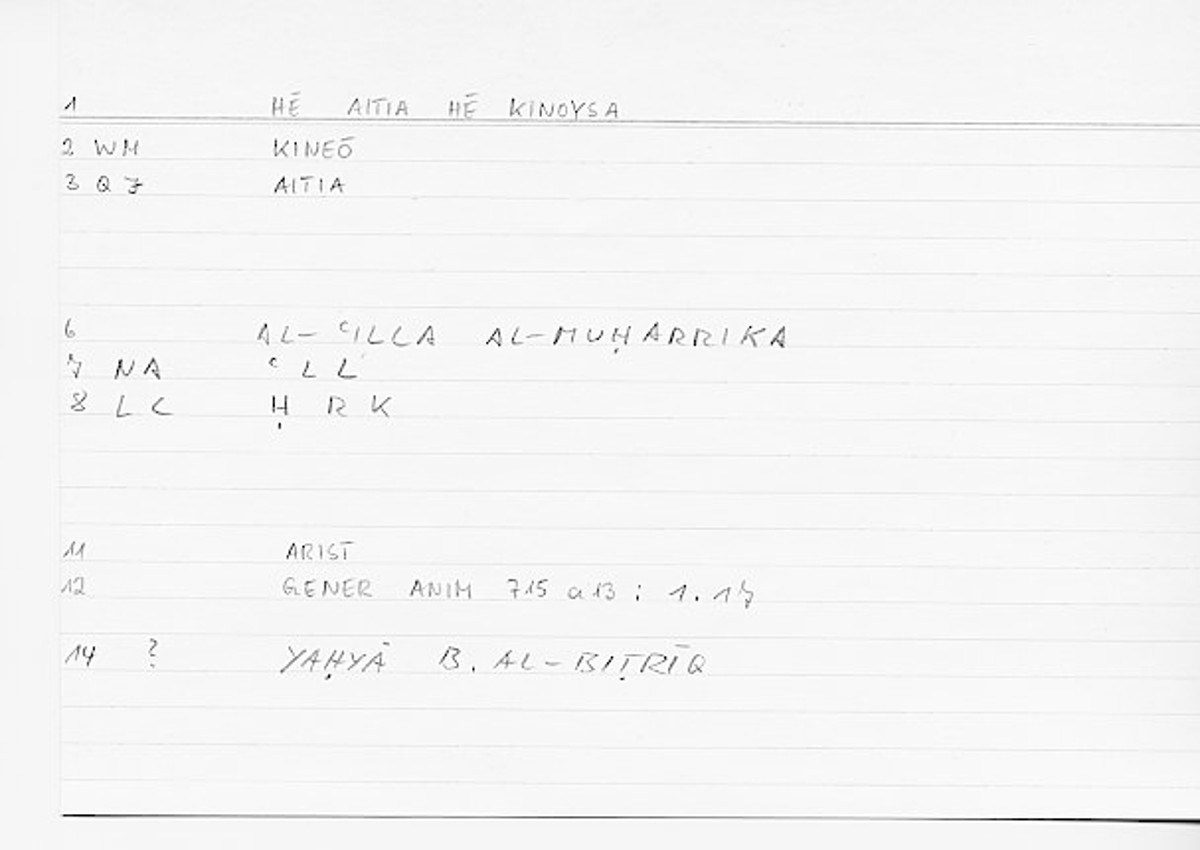 1 HĒ AITIA HĒ KINOYSA
2 WM KINEŌ
3 QZ AITIA
6 AL-ʿILLA AL-MUḤARRIKA
7 NA ʿLL
8 LC ḤRK
11 ARIST
12 GENER ANIM 715 a13 : 1.17
14 ? YAḤYĀ B. AL-BIṬRĪQ